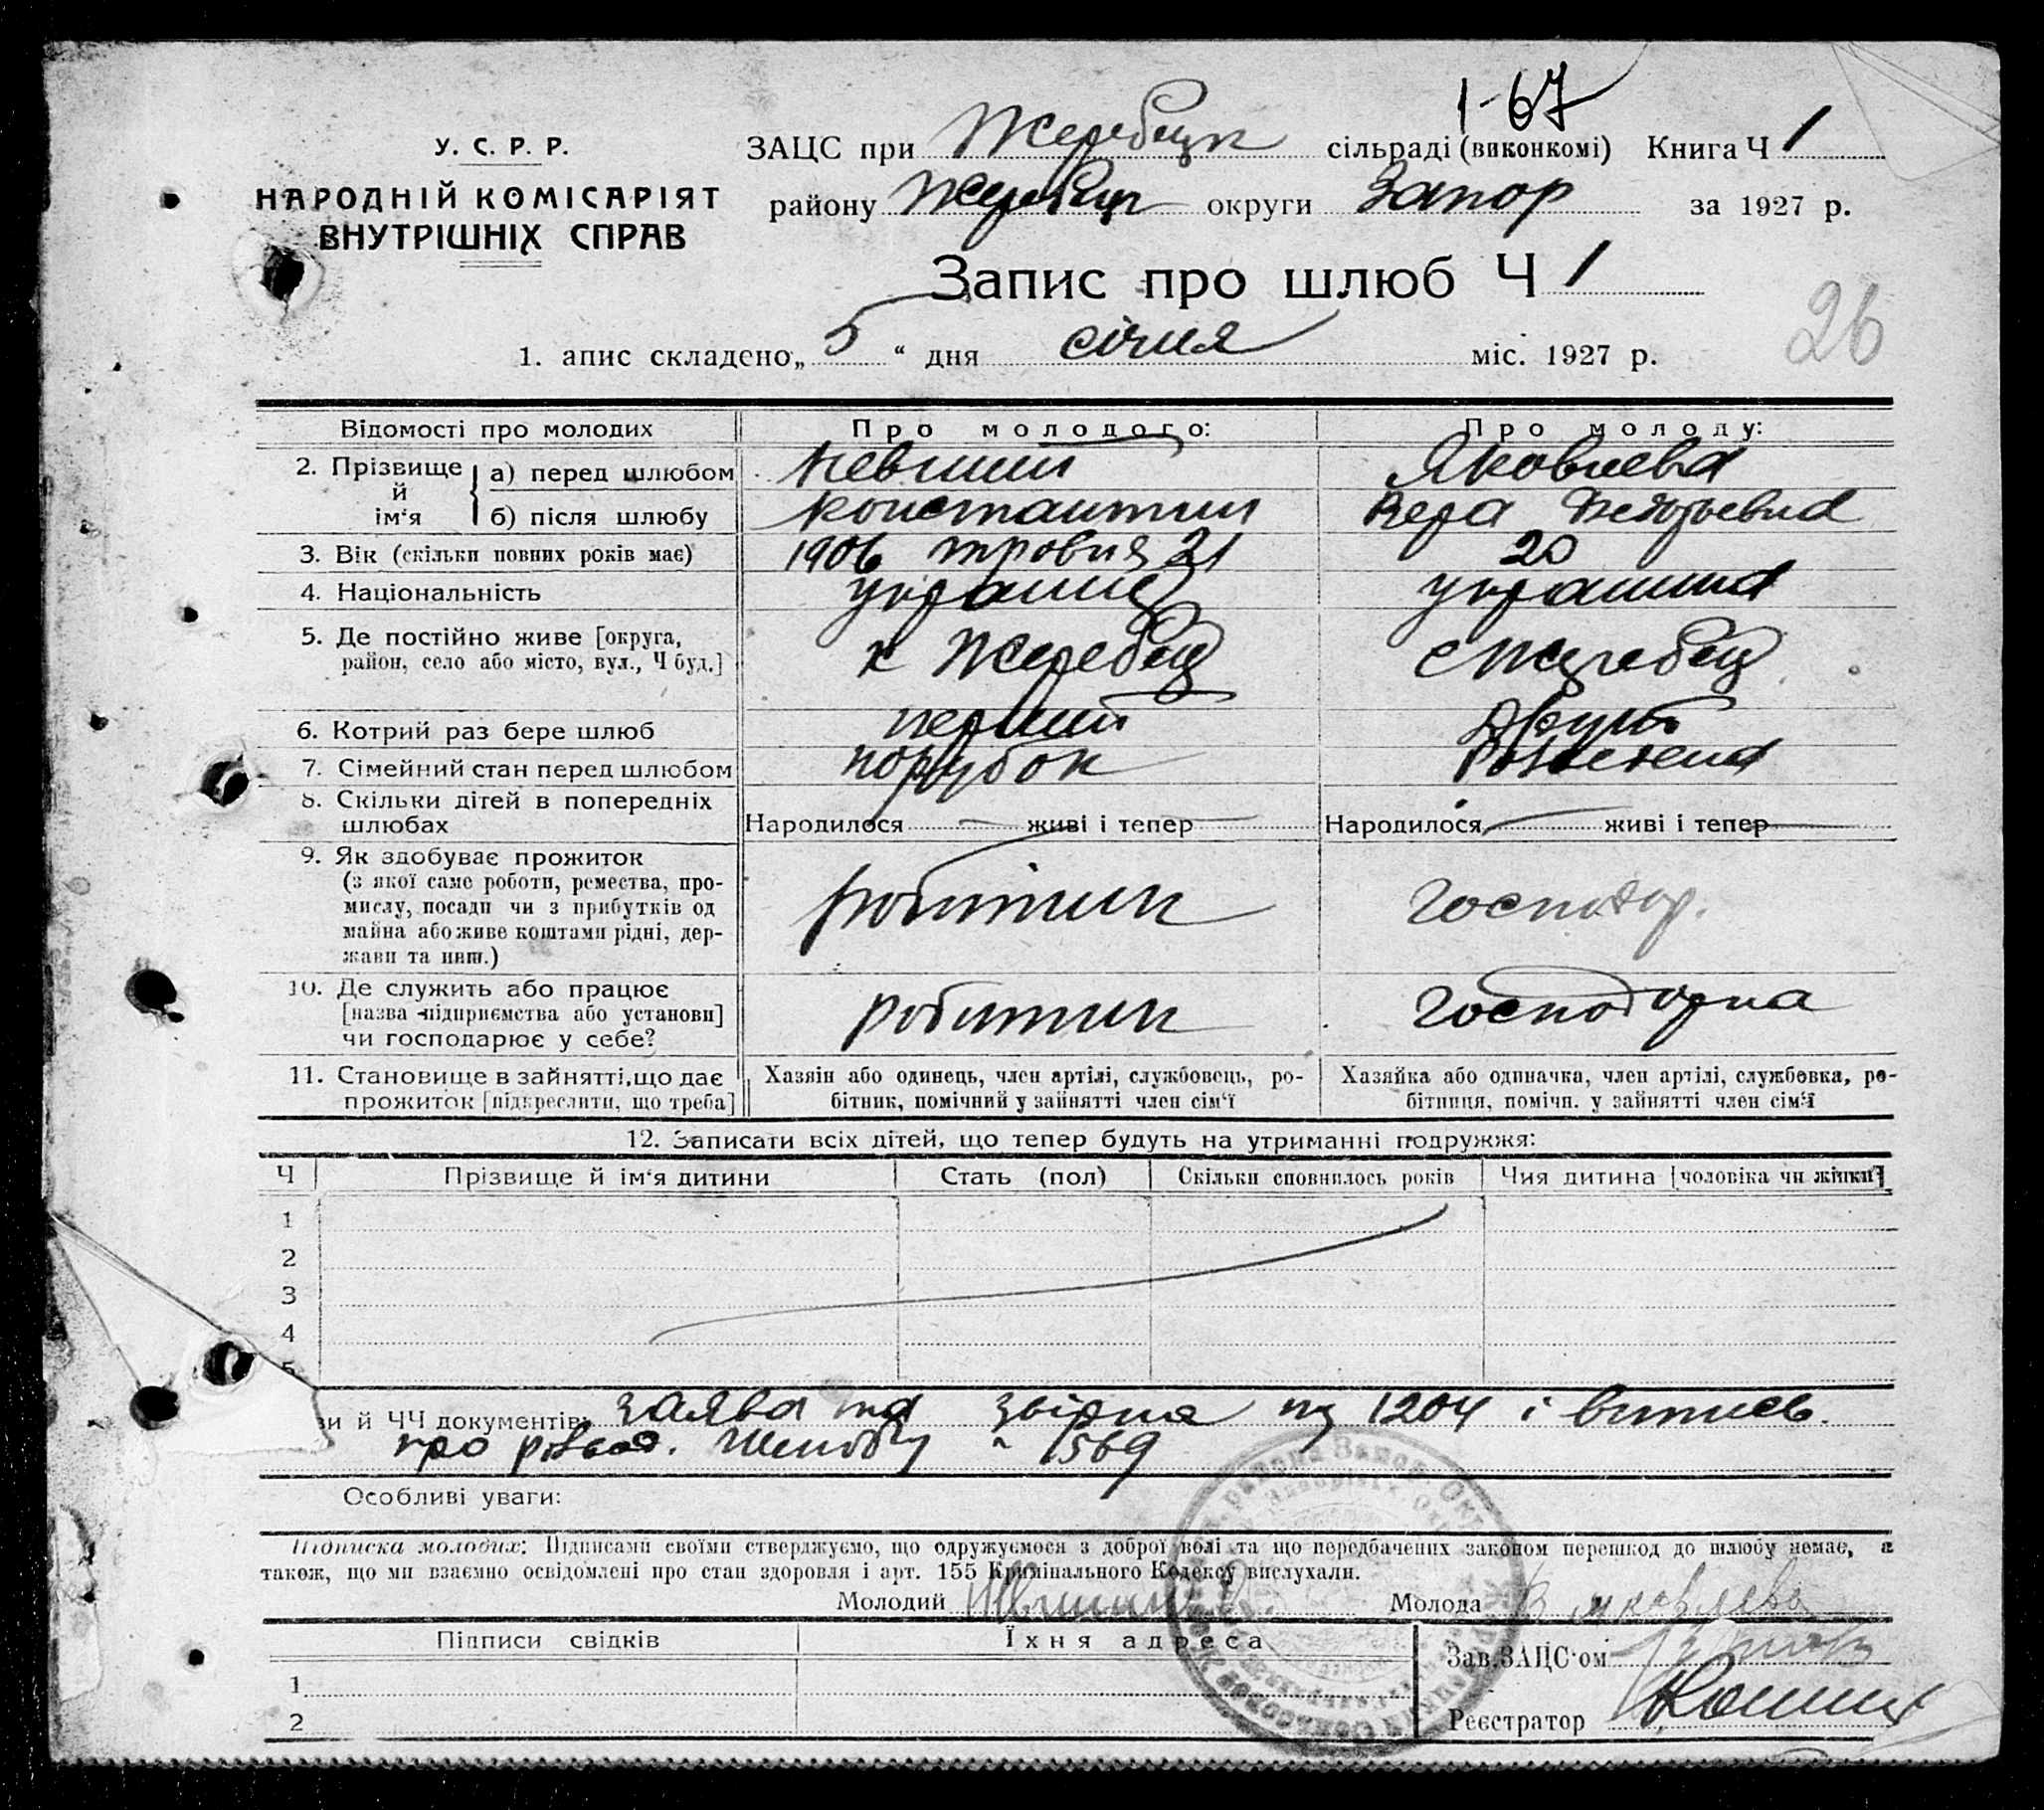 1-67
У. С. Р. Р.
НАРОДНІЙ КОМІСАРІЯТ
ВНУТРІШНІХ СПРАВ
ЗАЦС при Жеребецк сільраді (виконкомі) Книга Ч 1
району Жеребецк округи Запор за 1927 р.
Запис про шлюб Ч 1
26
1. апис складено „5“ дня січня міс. 1927 р.
Відомості про молодих Про молодого: Про молоду:
2. Прізвище й ім‘я
а) перед шлюбом Яковлева
б) після шлюбу Константин Вера
3. Вік (скільки повних років має) 1906 21 20
4. Національність українец українка
5. Де постійно живе [округа, район, село або місто, вул., Ч буд.] Жеребец с Жеребец
6. Котрий раз бере шлюб перший другий
7. Сімейний стан перед шлюбом порубок Розведена
8. Скільки дітей в попередніх шлюбах Народилося — живі і тепер — Народилося — живі і тепер —
9. Як здобуває прожиток
(з якої саме роботи, ремества, про-
мислу, посади чи з прибутків од
майна або живе коштами рідні, дер-
жави та инш.)
робітник господар.
10. Де служить або працює
[назва підприємства або установи]
чи господарює у себе?
робітник господарка
11. Становище в зайнятті, що дає
прожиток [підкреслити, що треба]
Хазяін або одинець, член артілі, службовець, ро-
бітник, помічний у зайнятті член сім‘ї
Хазяйка або одиначка, член артілі, службовка, ро-
бітниця, помічн. у зайнятті член сім‘ї
12. Записати всіх дітей, що тепер будуть на утриманні подружжя:
Ч Прізвище й ім‘я дитини Стать (пол) Скільки сповнилось років Чия дитина [чоловіка чи жінки]
1
2
3
4
5
зи й ЧЧ документів: заява та 1204 і випись
про розвод. 1569
Особливі уваги:
Підписка молодих: Підписами своїми стверджуємо, що одружуємося з доброї волі та що передбачених законом перешкод до шлюбу немає, а
також, що ми взаємно освідомлені про стан здоровля і арт. 155 Кримінального Кодексу вислухали.
Молодий Молода В Яковлева
Підписи свідків Їхня адреса
Зав. ЗАЦС‘ом
1
Реєстратор
2